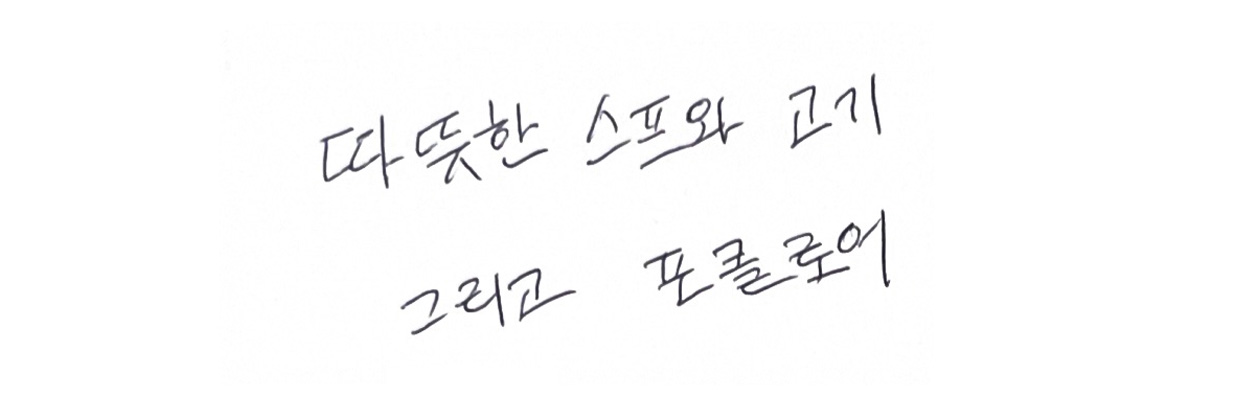 따뜻한 스프와 고기
그리고 포클로어